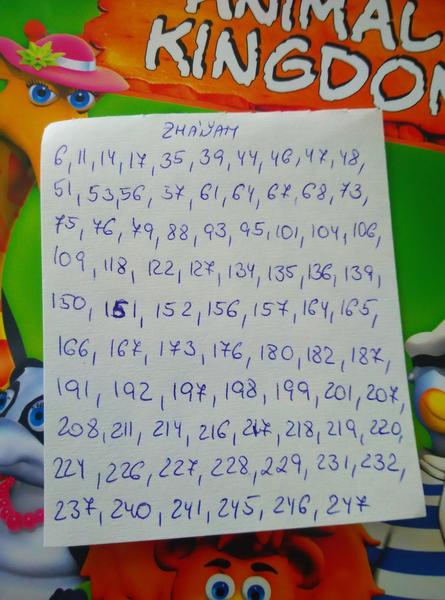 ANIMAL
KINGDOM
ZHAIYAM
6, 11, 14, 17, 35, 39, 44, 46, 47, 48,
51, 53, 56, 37, 61, 64, 67, 68, 73,
75, 76, 79, 88, 93, 95, 101, 104, 106,
109, 118, 122, 127, 134, 135, 136, 139,
150, 151, 152, 156, 157, 164, 165,
166, 167, 173, 176, 180, 182, 187,
191, 192, 197, 198, 199, 201, 207,
208, 211, 214, 216, 217, 218, 219, 220,
224, 226, 227, 228, 229, 231, 232,
237, 240, 241, 245, 246, 247